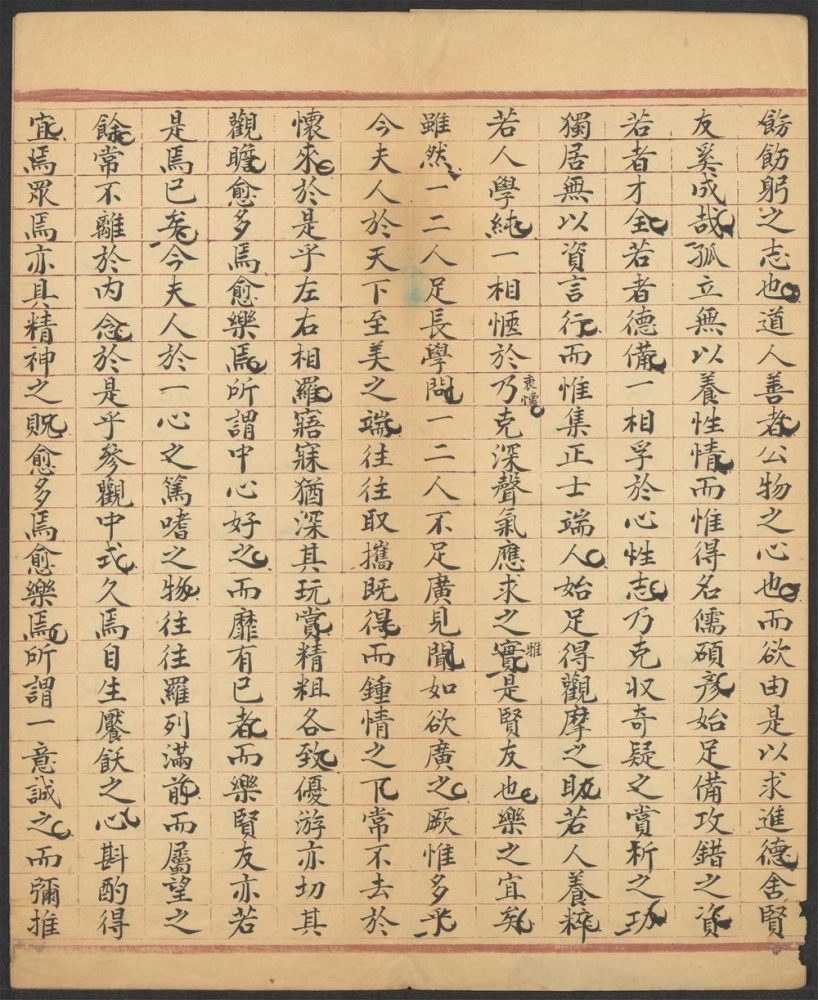 飭飭躬之志也道人善者公物之心也而欲由是以求進德舍賢
友奚成哉孤立無以養性情而惟得名儒碩彥始足備攻錯之資
若者才全若者德備一相孚於心性志乃克收奇疑之賞析之功
獨居無以資言行而惟集正士端人始足得觀摩之助若人養粹
若人學純一相愜於衷懷乃克深聲氣應求之雅實是賢友也樂之宜矣
雖然一二人足長學問一二人不足廣見聞如欲廣之厥惟多乎
今夫人於天下至美之端往往取攜既得而鍾情之下常不去於
懷來於是乎左右相羅寤寐猶深其玩賞精粗各致優游亦切其
觀瞻愈多焉愈樂焉所謂中心好之而靡有已者而樂賢友亦若
是焉已矣今夫人於一心之篤嗜之物往往羅列滿前而屬望之
餘常不離於內念於是乎參觀中式久焉自生饜飫之心斟酌得
宜焉眾焉亦具精神之貺愈多焉愈樂焉所謂一意誠之而彌推